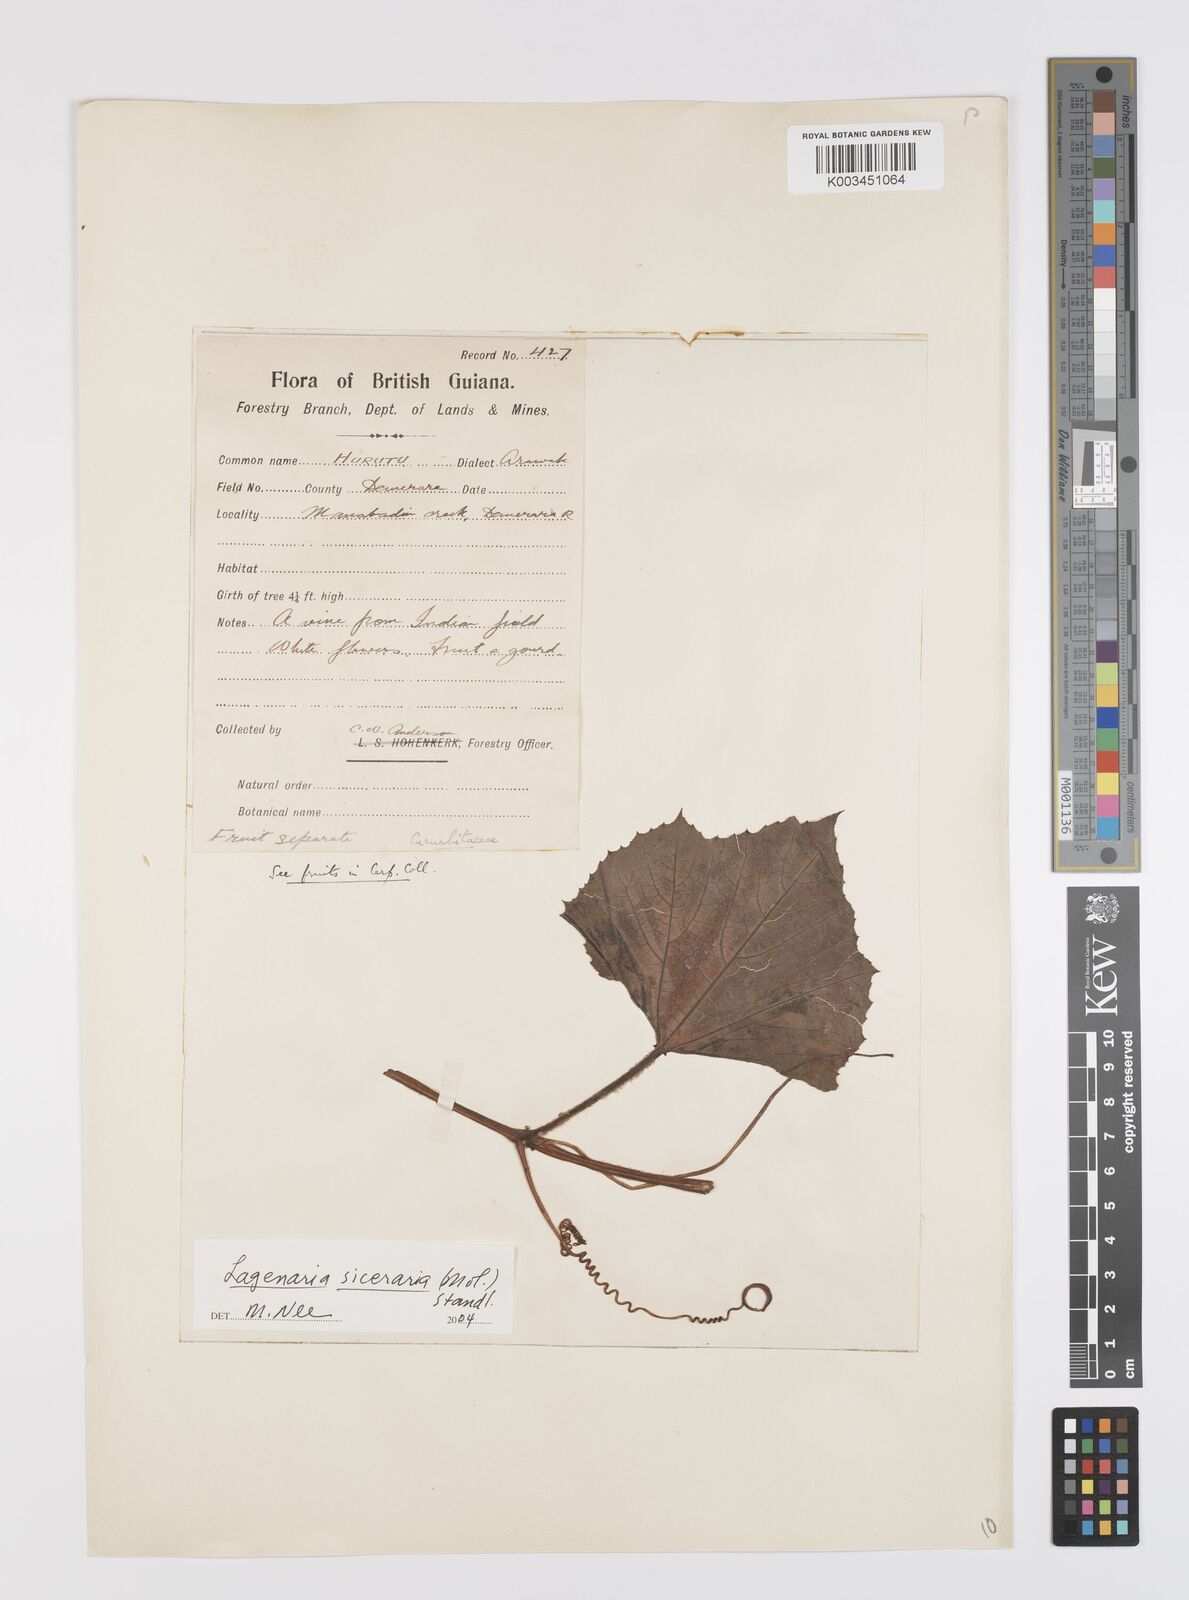 ROYAL BOTANIC GARDENS KEW
K003451064
Record No. 427
Flora of British Guiana.
Forestry Branch, Dept. of Lands & Mines.
Common name HURUTU Dialect Arawak
Field No. County Demerara Date
Locality creek, Demerara R
Habitat
Girth of tree 4¼ ft. high
Notes A vine from Indian field
White flowers. Fruit a gourd
Collected by C. W. Anderson
L. S. HOHENKERK, Forestry Officer.
Natural order
Botanical name
Fruit separate Cucurbitaceae
See fruits in Carp. Coll.
Lagenaria siceraria (Mol.)
Standl.
DET. M. Nee 2004
10
inches
Density
Don Williams
M001136
centimeters
Kew
Royal Botanic Gardens
copyright reserved
0 1 2 3 4 5 6 7 8 9 10
cm